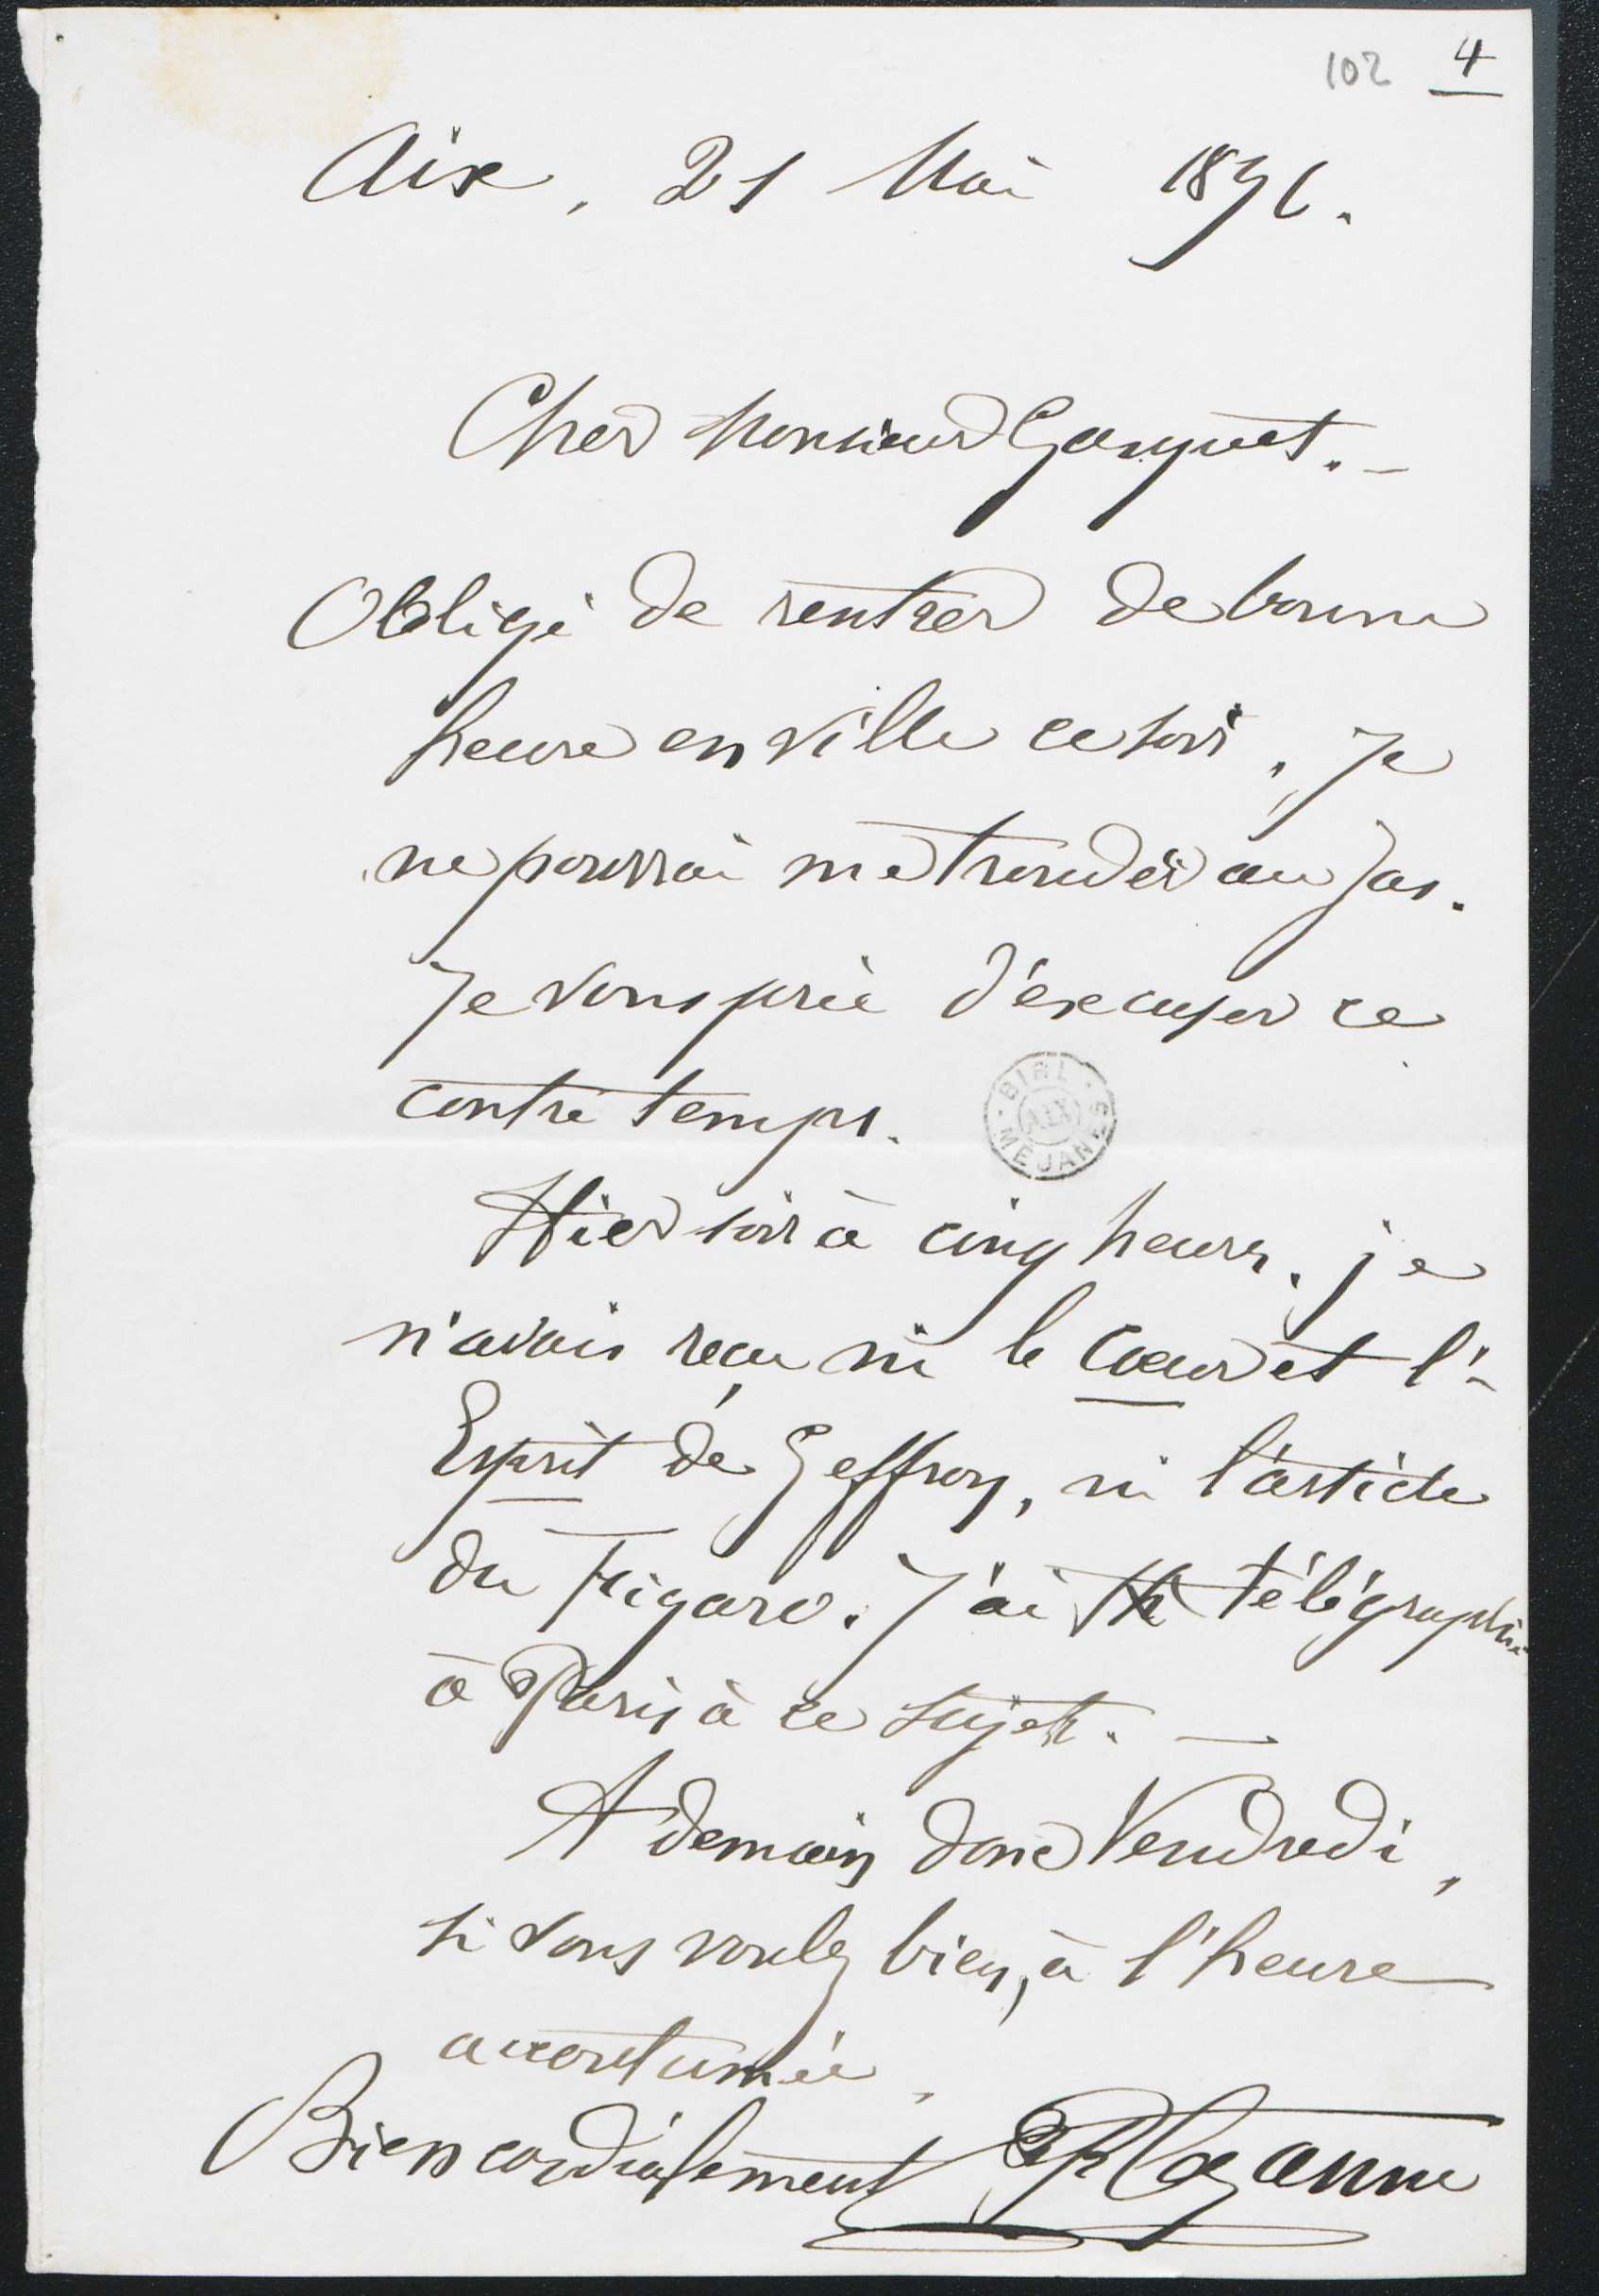 102 4
Aix, 21 Mai 1896.
Cher Monsieur Gasquet. -
Obligé de rentrer de bonne
heure en ville ce soir, je
ne pourrai me trouver au Jas.
Je vous prie d'excuser ce
contre temps.
BIBL. MEJANES AIX
Hier soir à cinq heures, je
n'avais reçu ni le Coeur et l'-
Esprit de Geffroy, ni l'article
du Figaro. J'ai télégraphié
à Paris à ce sujet. —
A demain donc Vendredi,
si vous voulez bien, à l'heure
accoutumée.
Bien cordialement P Cezanne